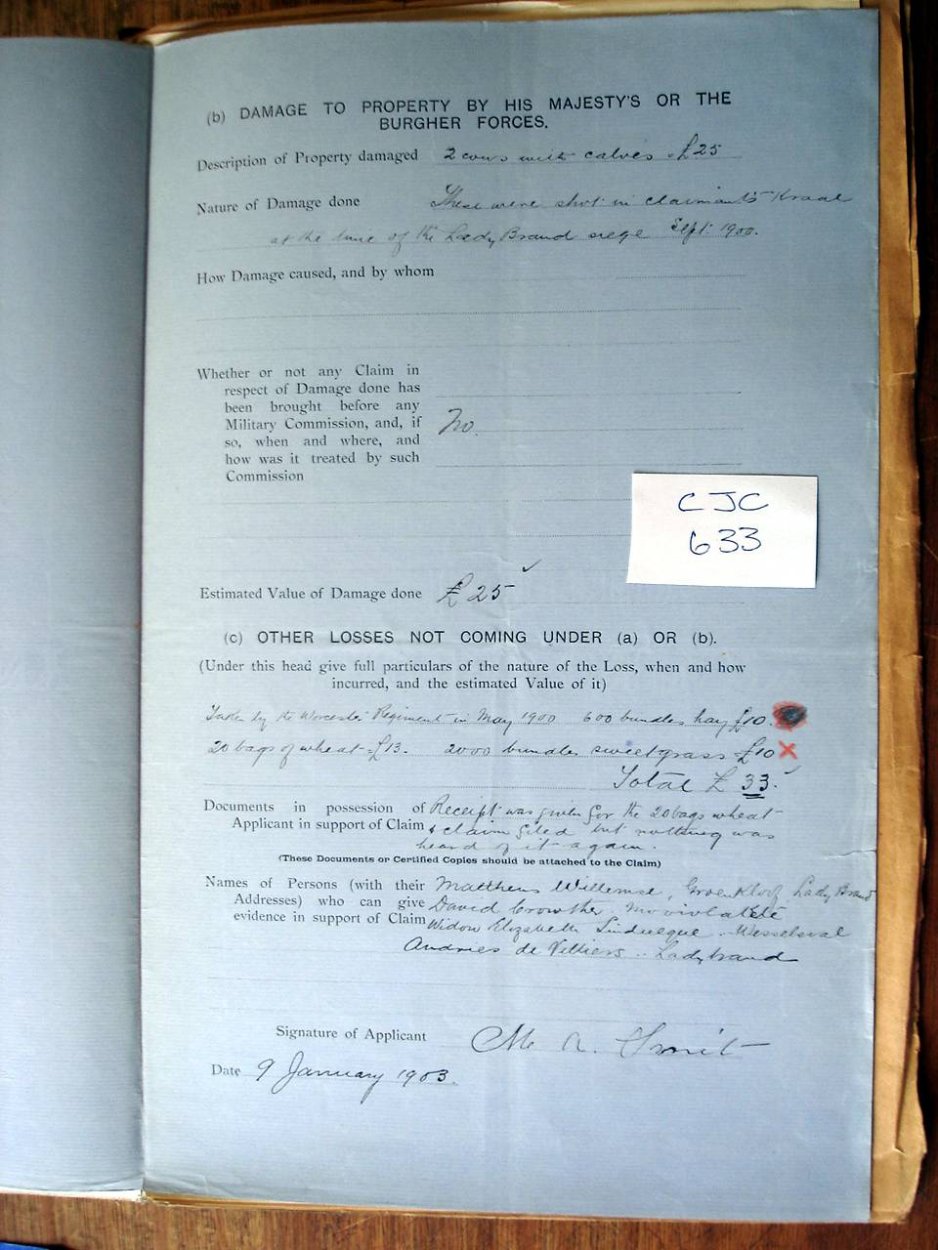 (b) DAMAGE TO PROPERTY BY HIS MAJESTY'S OR THE
BURGHER FORCES.
Description of Property damaged 2 cows with calves £25
Nature of Damage done These were shot in claimant's Kraal
at the time of the Lady Brand siege Sept. 1900.
How Damage caused, and by whom
Whether or not any Claim in
respect of Damage done has
been brought before any
Military Commission, and, if No.
so, when and where, and
how was it treated by such
Commission
CJC
633
Estimated Value of Damage done £25
(c) OTHER LOSSES NOT COMING UNDER (a) OR (b).
(Under this head give full particulars of the nature of the Loss, when and how
incurred, and the estimated Value of it)
Taken by the Worcester Regiment in May 1900 600 bundles hay £10.
20 bags of wheat £13. 2000 bundles sweetgrass £10
Total £33.
Documents in possession of Receipt was given for the 20 bags wheat
Applicant in support of Claim & claim filed but nothing was
heard of it again.
(These Documents or Certified Copies should be attached to the Claim)
Names of Persons (with their Matthews Willemse, Groenkloof, Lady Brand
Addresses) who can give David Crowther
evidence in support of Claim Widow Elizabeth
Andries de Villiers Ladybrand
Signature of Applicant M. A. Smit
Date 9 January 1903.